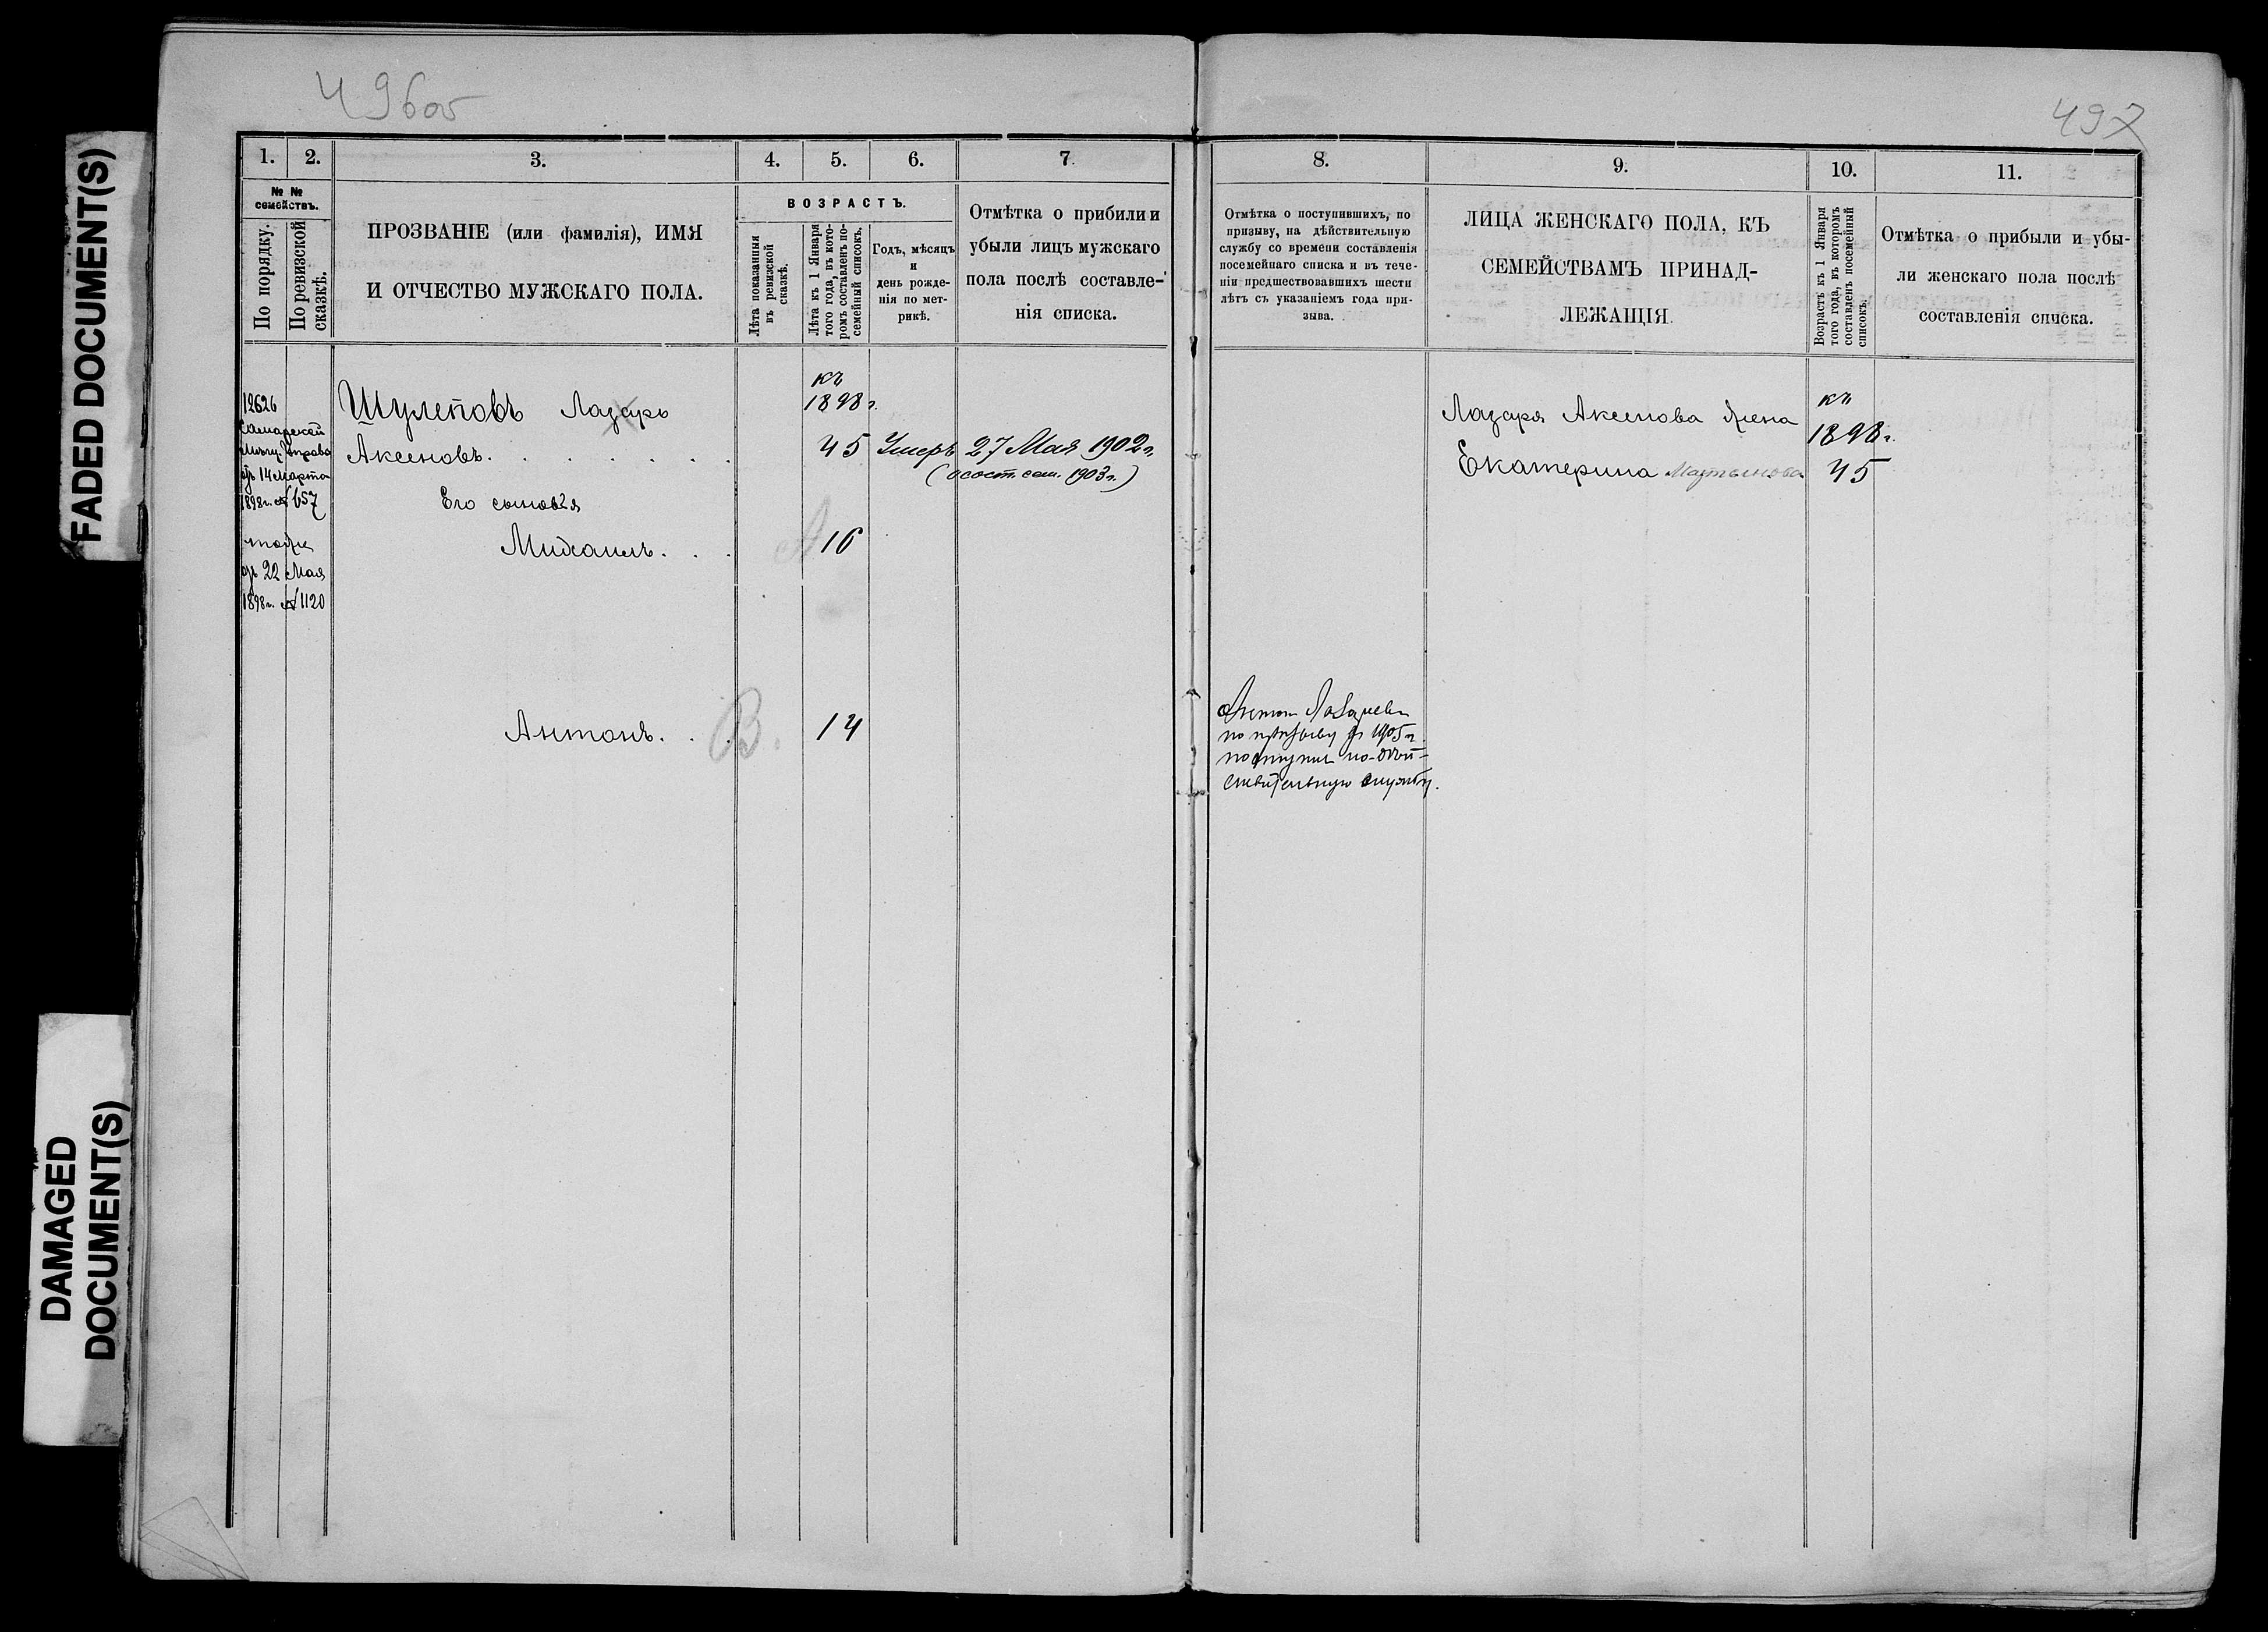 FADED DOCUMENT(S)
DAMAGED
DOCUMENT(S)
496об
1.
2.
3.
4.
5.
6.
7.
№ №
семействъ.
По порядку.
По ревизской
сказкѣ.
ПРОЗВАНІЕ (или фамилія), ИМЯ
И ОТЧЕСТВО МУЖСКАГО ПОЛА.
ВОЗРАСТЪ.
Лѣта показанныя
въ ревизской
сказкѣ.
Лѣта къ 1 Января
того года, въ кото-
ромъ составленъ по-
семейный списокъ.
Годъ, мѣсяцъ
и
день рожде-
нія по мет-
рикѣ.
Отмѣтка о прибыли и
убыли лицъ мужскаго
пола послѣ составле-
нія списка.
12626
Самарской
Мѣщ. Управы
отъ 14 Марта
1898 г. № 657
тоже
отъ 22 Мая
1898 г. № 1120
Шулеповъ Лазарь
Аксеновъ.
Его сыновья
Михаилъ.
Антонъ.
къ
1898 г.
45
А 16
В. 14
Умеръ 27 Мая 1902 г.
(о сост. сем. 1903 г.)
497
8.
9.
10.
11.
Отмѣтка о поступившихъ, по
призыву, на дѣйствительную
службу со времени составленія
посемейнаго списка и въ тече-
ніи предшествовавшихъ шести
лѣтъ съ указаніемъ года при-
зыва.
ЛИЦА ЖЕНСКАГО ПОЛА, КЪ
СЕМЕЙСТВАМЪ ПРИНАД-
ЛЕЖАЩІЯ.
Возрастъ къ 1 Января
того года, въ которомъ
составленъ посемейный
списокъ.
Отмѣтка о прибыли и убы-
ли женскаго пола послѣ
составленія списка.
Антон Лазарев
по призыву 1905 г.
поступил на дѣй-
ствительную службу.
Лазаря Аксенова жена
Екатерина Мартынова
къ
1898 г.
45